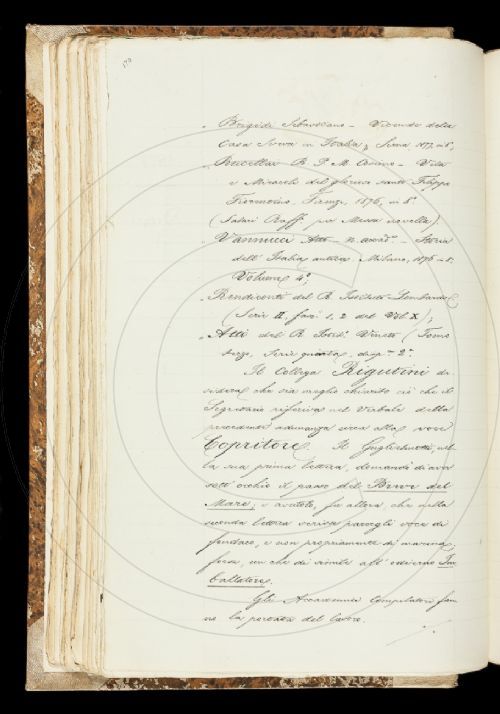 Brigidi Sebastiano – Vicende della
Casa Sveva in Italia, Siena 1877, in 8º;
Rucellai B. P. M. – Vita
e Miracoli del glorioso santo Filippo
Fiorentino. Firenze, 1876, in 8º.
(Salari Raff. per Messa novella).
Vannucci Atto – n. – Storia
dell' Italia antica. Milano, 1876 – 8.
Volume 4º;
Rendiconti del R. Istituto Lombardo
(Serie II, fasc. 1, 2 del Vol X);
Atti del R. Istit. Veneto (Tomo
terzo, Serie quinta, disp. 2ª.
Il Collega Rigutini de
sidera che sia meglio chiarito ciò che il
Segretario riferiva nel Verbale della
precedente adunanza circa alla voce
Copritore. Il Guglielmotti, nel
la sua prima lettera, domandò di aver
sott' occhio il passo del Breve del
Mare, e avutolo, fu allora, che nella
seconda lettera scrisse parergli voce di
fondaco, e non propriamente di marina,
forse un che di simile all' odierno Im
ballatore.
Gli Accademici Compilatori fan
no la portata del lavoro.